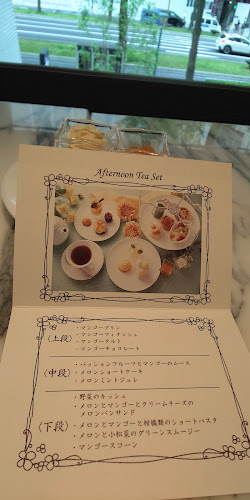 Afternoon Tea Set
・マンゴープリン
・マンゴーフィナンシェ
(上段)
・マンゴータルト
・マンゴーチョコレート
・パッションフルーツとマンゴーのムース
(中段)
・メロンショートケーキ
・メロンミントジュレ
・野菜のキッシュ
・メロンとマンゴーとクリームチーズの
メロンパンサンド
(下段)
・メロンとマンゴーと柑橘類のショートパスタ
・メロンと小松菜のグリーンスムージー
・マンゴースコーン